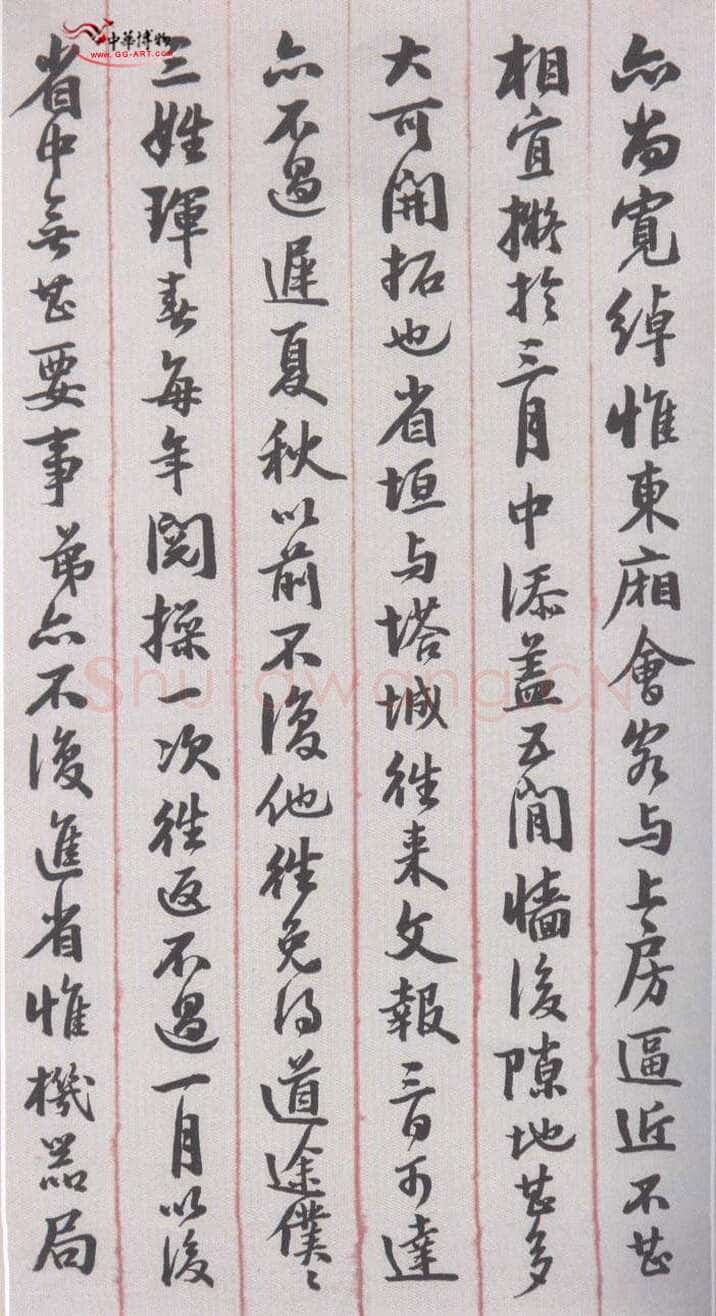 亦尚寬綽惟東廂會客与上房逼近不甚
相宜擬於三月中添蓋五間牆後隙地甚多
大可開拓也省垣与塔城往来文報三日可達
亦不過遲夏秋以前不復他往免得道途僕僕
三姓琿春每年閱操一次往返不過一月以後
省中無甚要事弟亦不復進省惟機器局
中華博物
www.GG-ART.com
Shufawang.CN